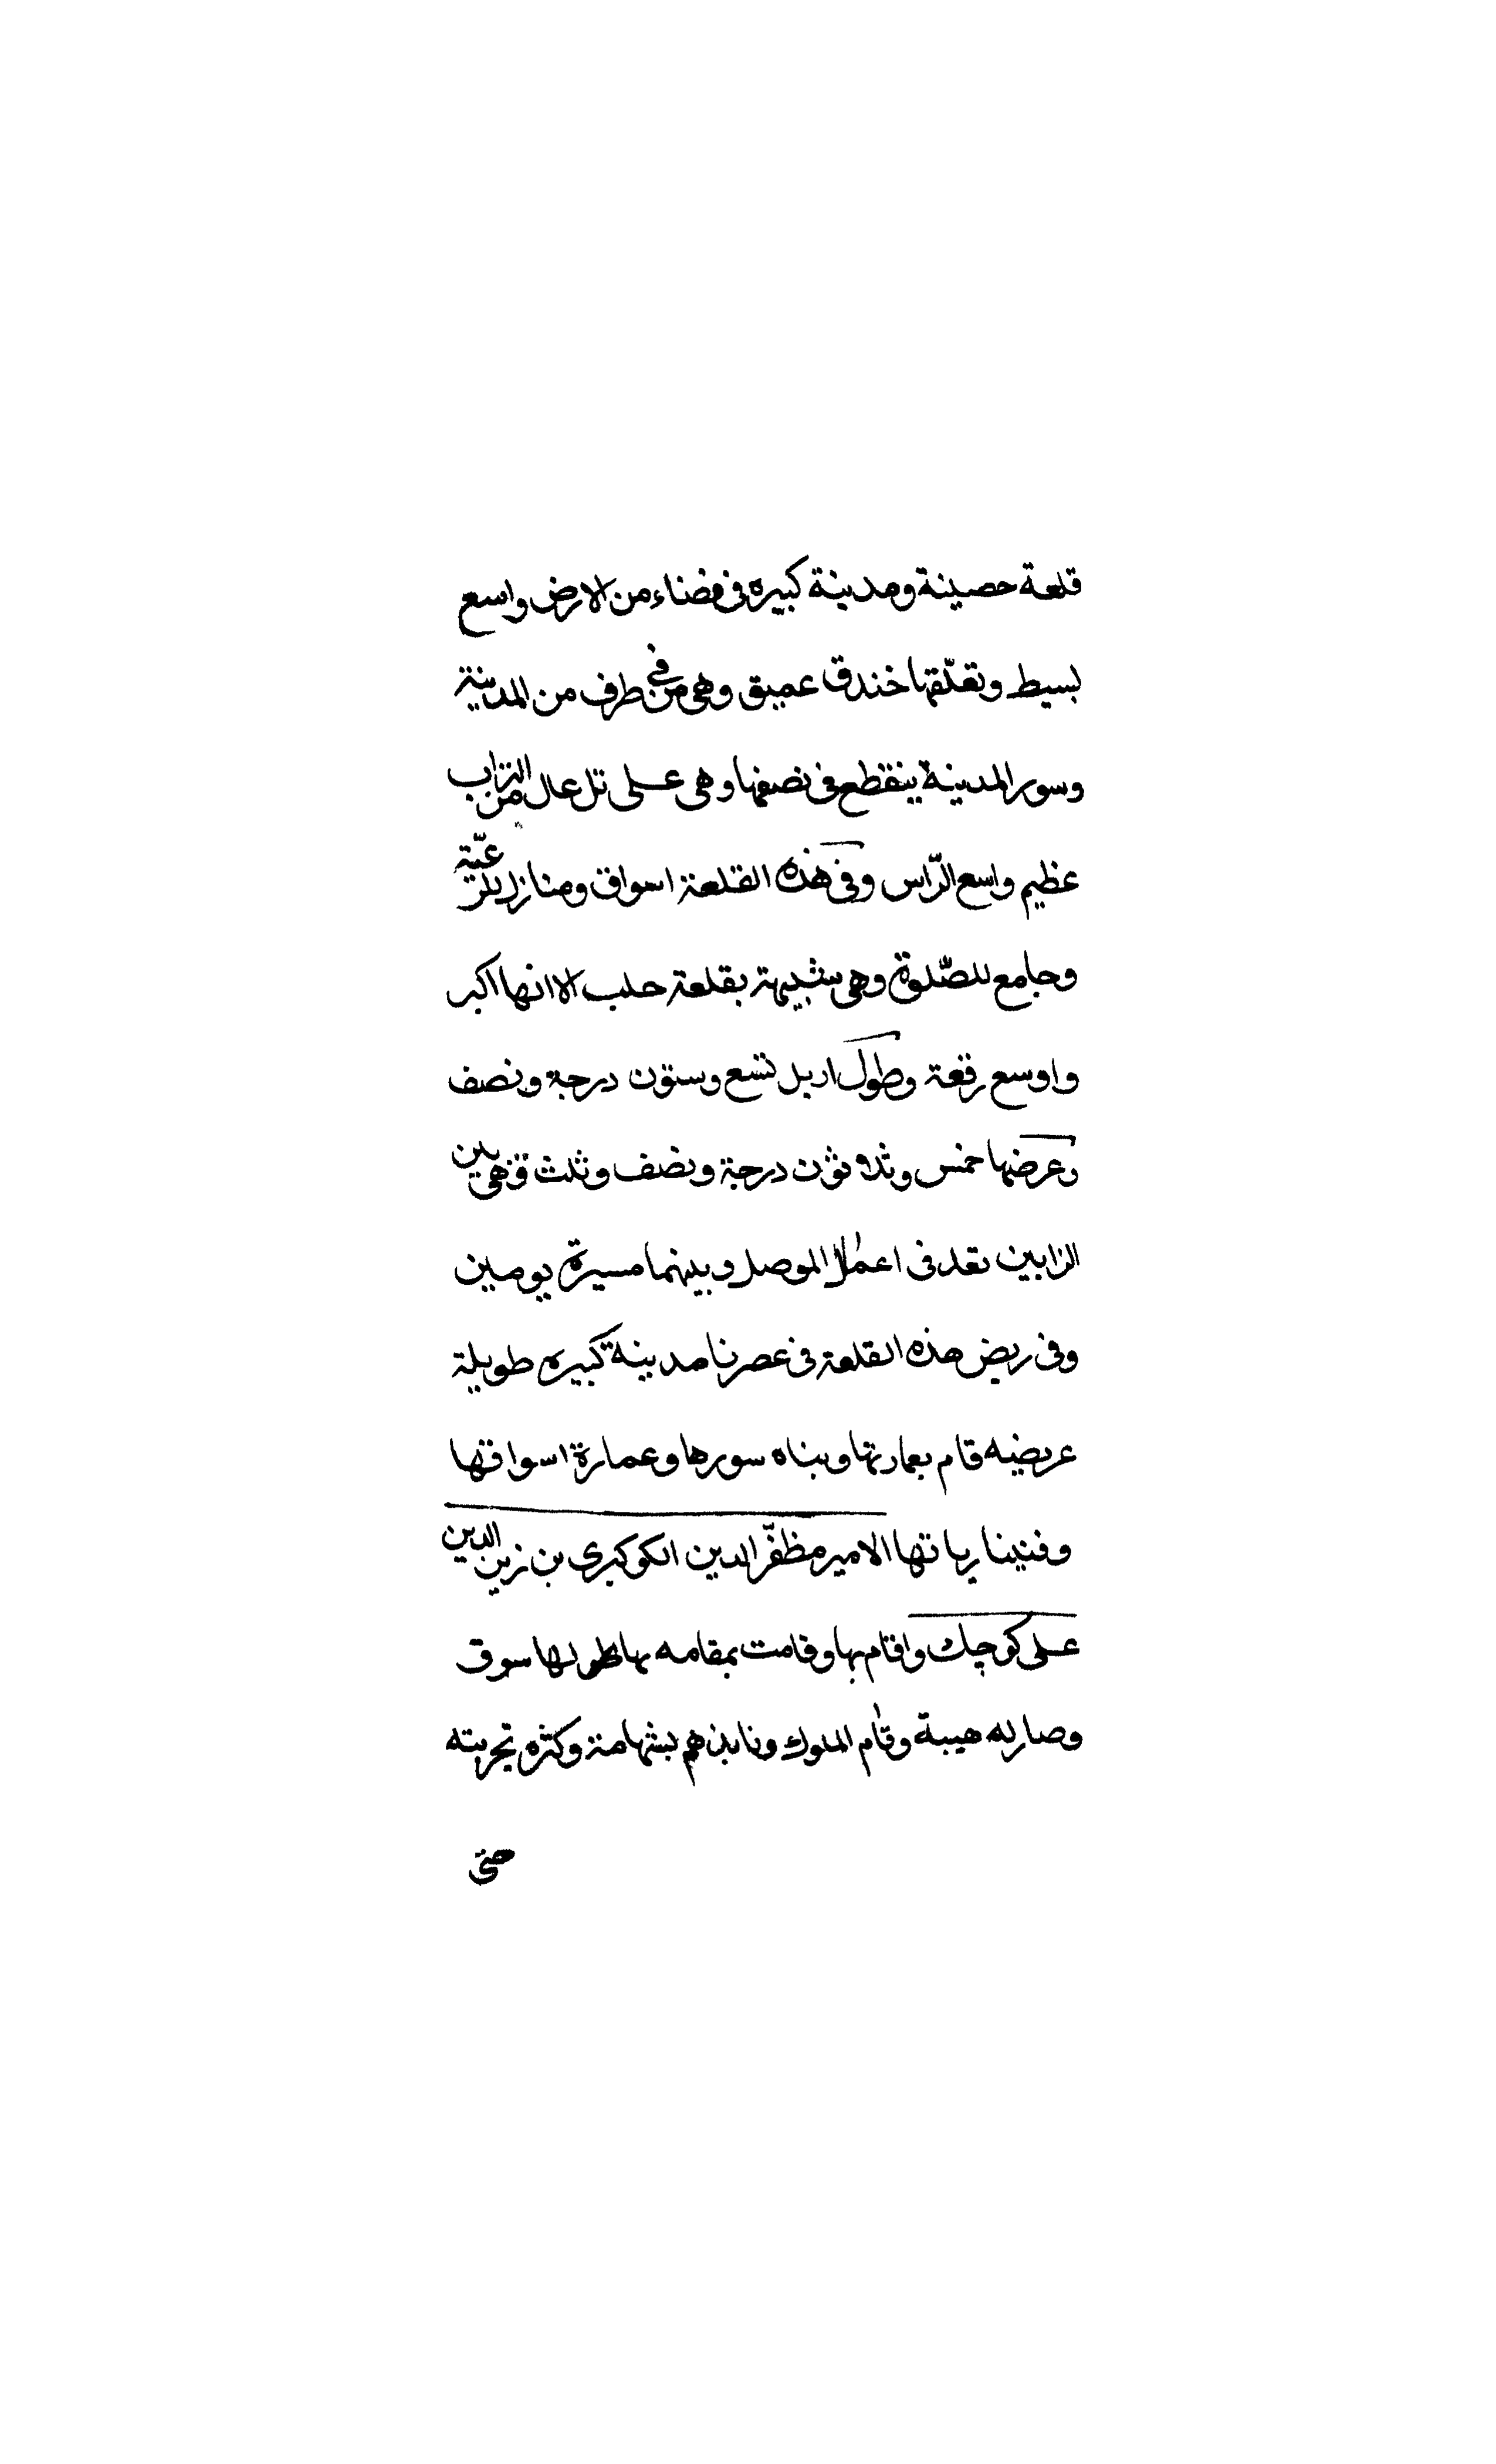 قلعة حصينة ومدينة كبيرة في فضاء من الارض واسع
بسيط وتعلّقها خندق عميق وهى من في طرف من المدينة
وسور المدينة ينقطع في نصفها وهى على تل عال من التراب
عظيم واسع الرّاس وفي هذه القلعة اسواق ومنازل للرعيّة
وجامع للصّلوة وهى شبيهة بقلعة حلب الا انها اكبر
واوسع رقعة وطول اربل تسع وستون درجة ونصف
وعرضها خمس وثلاثون درجة ونصف وثلث وهى بين
الزابين تعد في اعمال الموصل وبينهما مسيرة يومين
وفي ربض هذه القلعة في عصرنا مدينة كبيرة طويلة
عريضه قام بعمارتها وبناه سورها وعمارة اسواقها
الامير مظفّر الدين الكوكبرى بن زين الدين
على كوچك واقام بها وقامت بمقامه بها لها سوق
وصار له هيبة وقام الملوك ونابذهم بشهامة وكثره تجربته
حتى